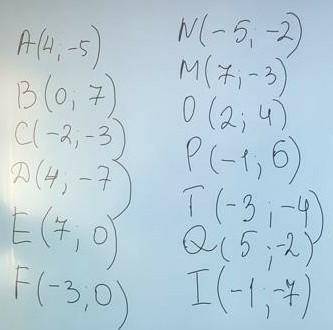 A(4; -5)
B(0; 7)
C(-2; -3)
D(4; -7)
E(7; 0)
F(-3; 0)
N(-5; -2)
M(7; -3)
O(2; 4)
P(-1; 6)
T(-3; -4)
Q(5; -2)
I(-1; -7)